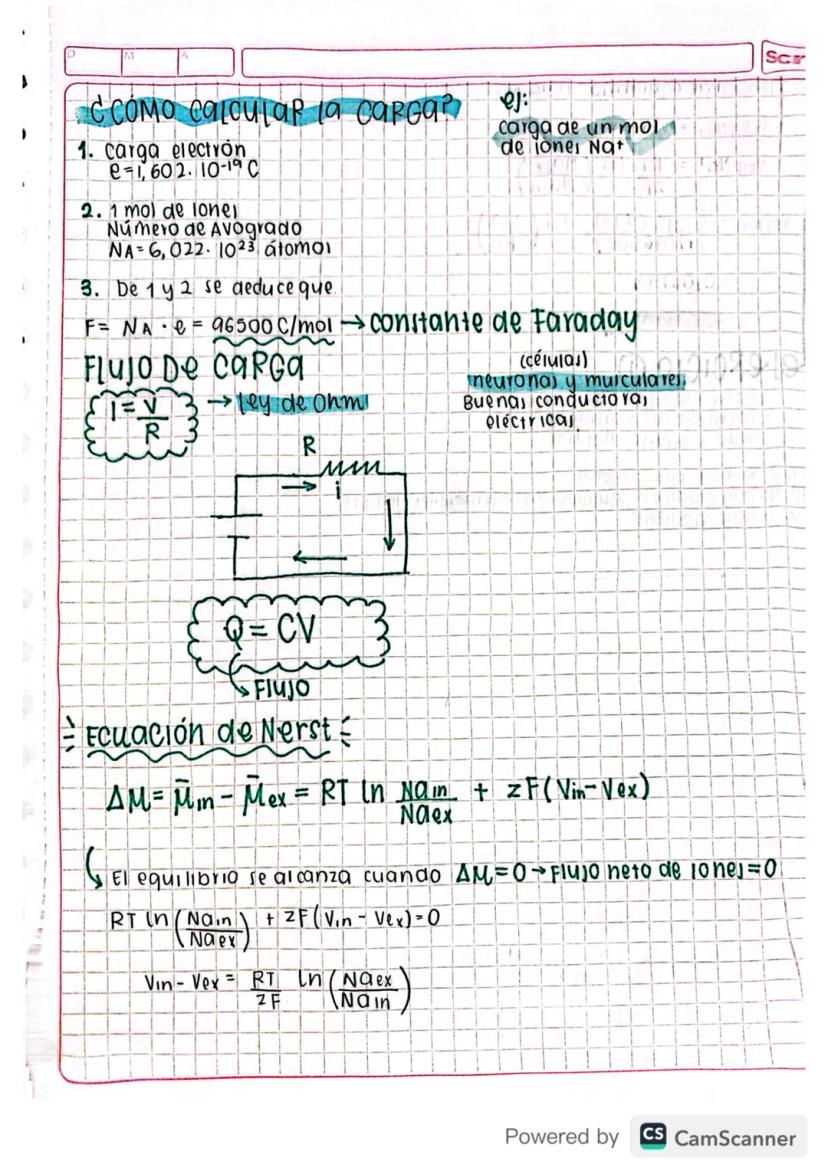 D M A
Scr
¿CÓMO CALCULAR LA CARGA?
ej:
carga de un mol
de iones Na+
1. Carga electrón
e=1,602. 10-19 C
2. 1 mol de Iones
Número de Avogrado
NA=6,022. 10²³ átomos
3. De 1 y 2 se deduce que
F= NA · e = 96500 C/mol → constante de Faraday
FLUJO DE CARGA
(células)
neuronas y musculares
Buenas conductoras
eléctricas.
I = V/R → Ley de Ohm
R
i
Q = CV
Flujo
Ecuación de Nerst
ΔM = μ̄in - μ̄ex = RT ln Nain/Naex + zF(Vin-Vex)
El equilibrio se alcanza cuando ΔM=0 → Flujo neto de iones=0
RT ln (Nain/Naex) + zF(Vin - Vex)=0
Vin - Vex = RT/zF ln (Naex/Nain)
Powered by CS CamScanner